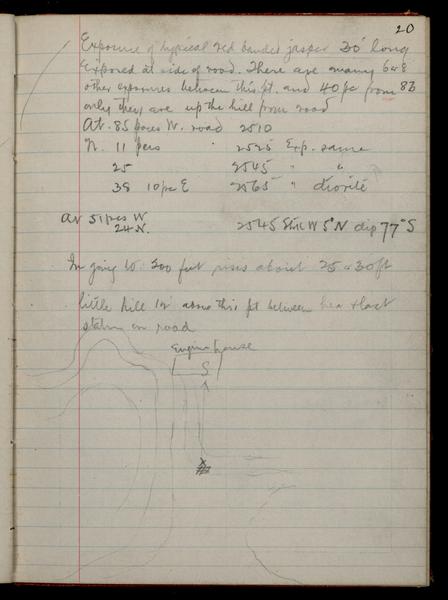 20
Exposure of typical red banded jasper 30' long
Exposed at side of road. There are many
other exposures between this pt. and 40 pc from 83
only they are up the hill from road
At 85 paces W. road 2510
N. 11 paces " 2525 Exp. same
25 2545 " "
38 10 pc E 2565 " diorite
At 51 pcs W
24 N. 2545 Strike W 5° N dip 77° S
In going W. 200 feet rises about 25 or 30 ft
little hill 12' above this pt between here & last
station on road
Engine house
S